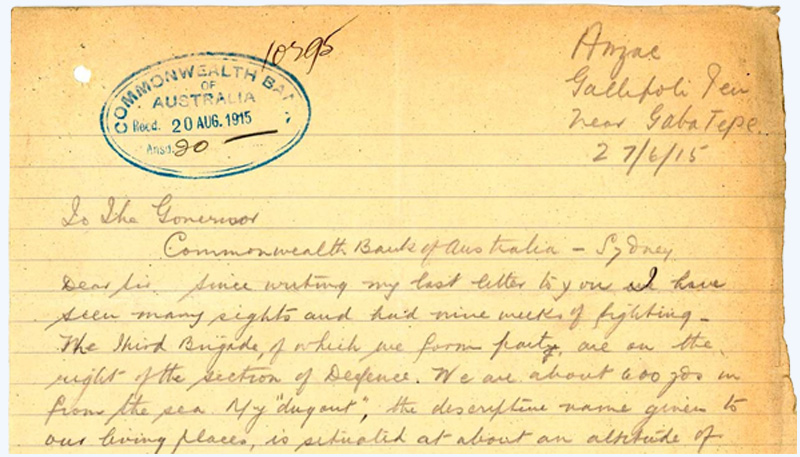 10295
COMMONWEALTH BAN
OF
AUSTRALIA
Recd. 20 AUG. 1915
Ansd. 20
Anzac
Gallipoli Pen
near Gaba Tepe
27/6/15
To The Governor
Commonwealth Bank of Australia - Sydney
Dear Sir Since writing my last letter to you I have
seen many sights and had nine weeks of fighting -
The Third Brigade, of which we form part, are on the
right of the section of Defence. We are about 600 yds in
from the sea. My "dugout", the descriptive name given to
our living places, is situated at about an altitude of